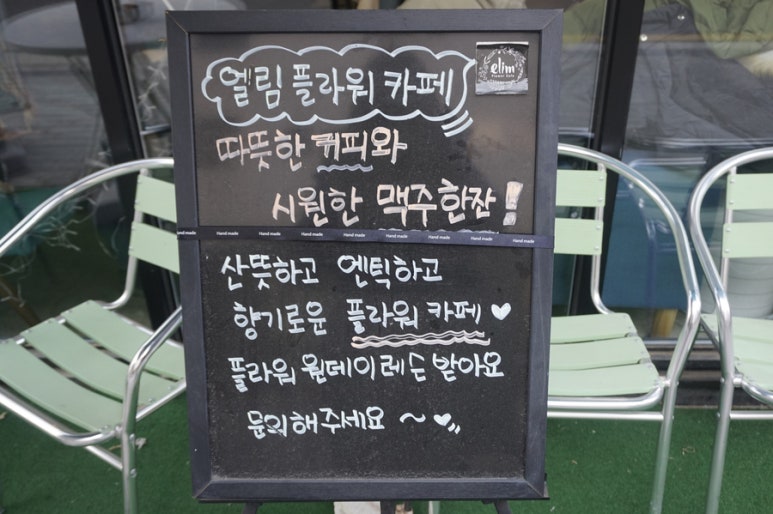 엘림 플라워 카페
elim
Flower Cafe
따뜻한 커피와
시원한 맥주 한잔!
Hand made Hand made Hand made Hand made Hand made Hand made Hand made Hand made
산뜻하고 엔틱하고
향기로운 플라워 카페 ♥
플라워 원데이레슨 받아요
문의해주세요 ~ ♥,,